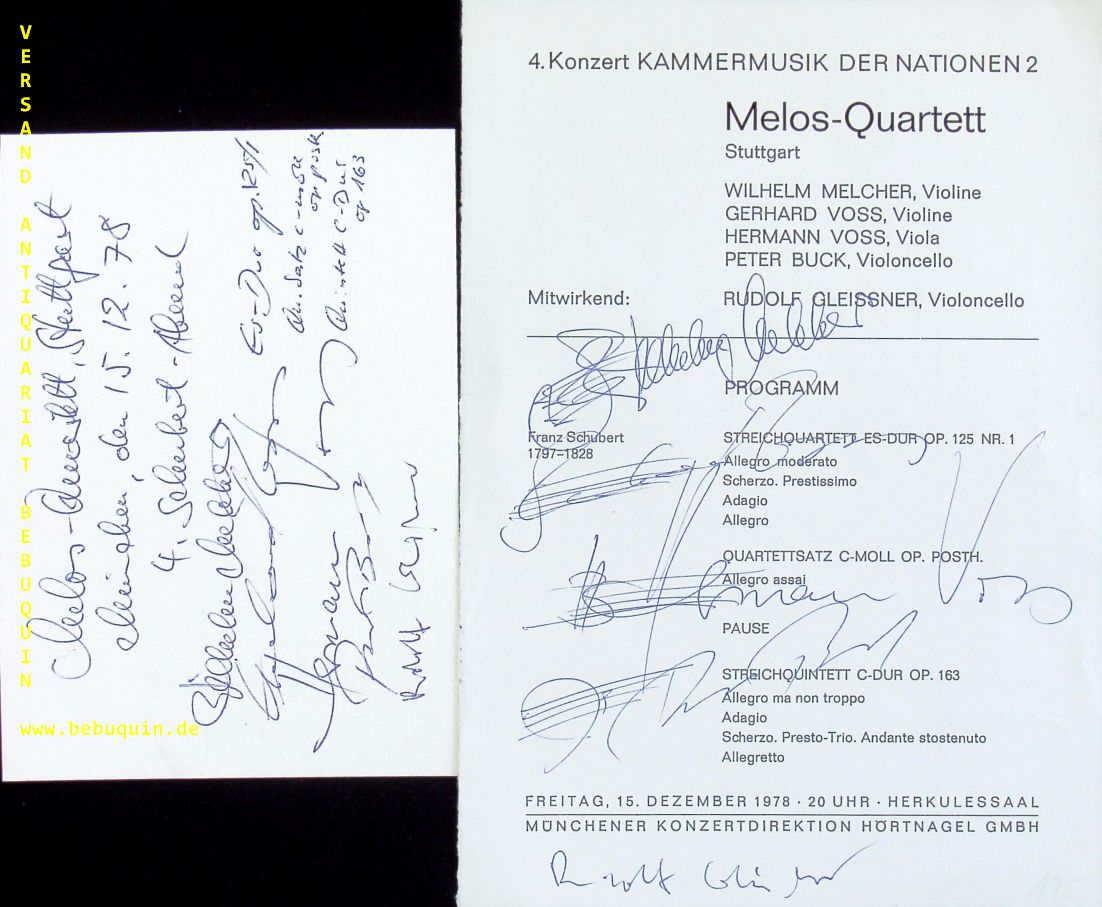 VERSAND ANTIQUARIAT BEBUQUIN
www.bebuquin.de
Melos-Quartett, Stuttgart
München, den 15.12.78
4. Schubert-Abend
Es-Dur op. 125/1
Qu.Satz c-moll
op posth
Quintett C-Dur
op 163
Wilhelm Melcher
Gerhard Voss
Hermann
Peter Buck
Rudolf Gleißner
4. Konzert KAMMERMUSIK DER NATIONEN 2
Melos-Quartett
Stuttgart
WILHELM MELCHER, Violine
GERHARD VOSS, Violine
HERMANN VOSS, Viola
PETER BUCK, Violoncello
Mitwirkend: RUDOLF GLEISSNER, Violoncello
Wilhelm Melcher
PROGRAMM
Franz Schubert
1797–1828
STREICHQUARTETT ES-DUR OP. 125 NR. 1
Allegro moderato
Scherzo. Prestissimo
Adagio
Allegro
QUARTETTSATZ C-MOLL OP. POSTH.
Allegro assai
Hermann Voss
PAUSE
STREICHQUINTETT C-DUR OP. 163
Allegro ma non troppo
Adagio
Scherzo. Presto-Trio. Andante stostenuto
Allegretto
FREITAG, 15. DEZEMBER 1978 · 20 UHR · HERKULESSAAL
MÜNCHENER KONZERTDIREKTION HÖRTNAGEL GMBH
Rudolf Gleißner